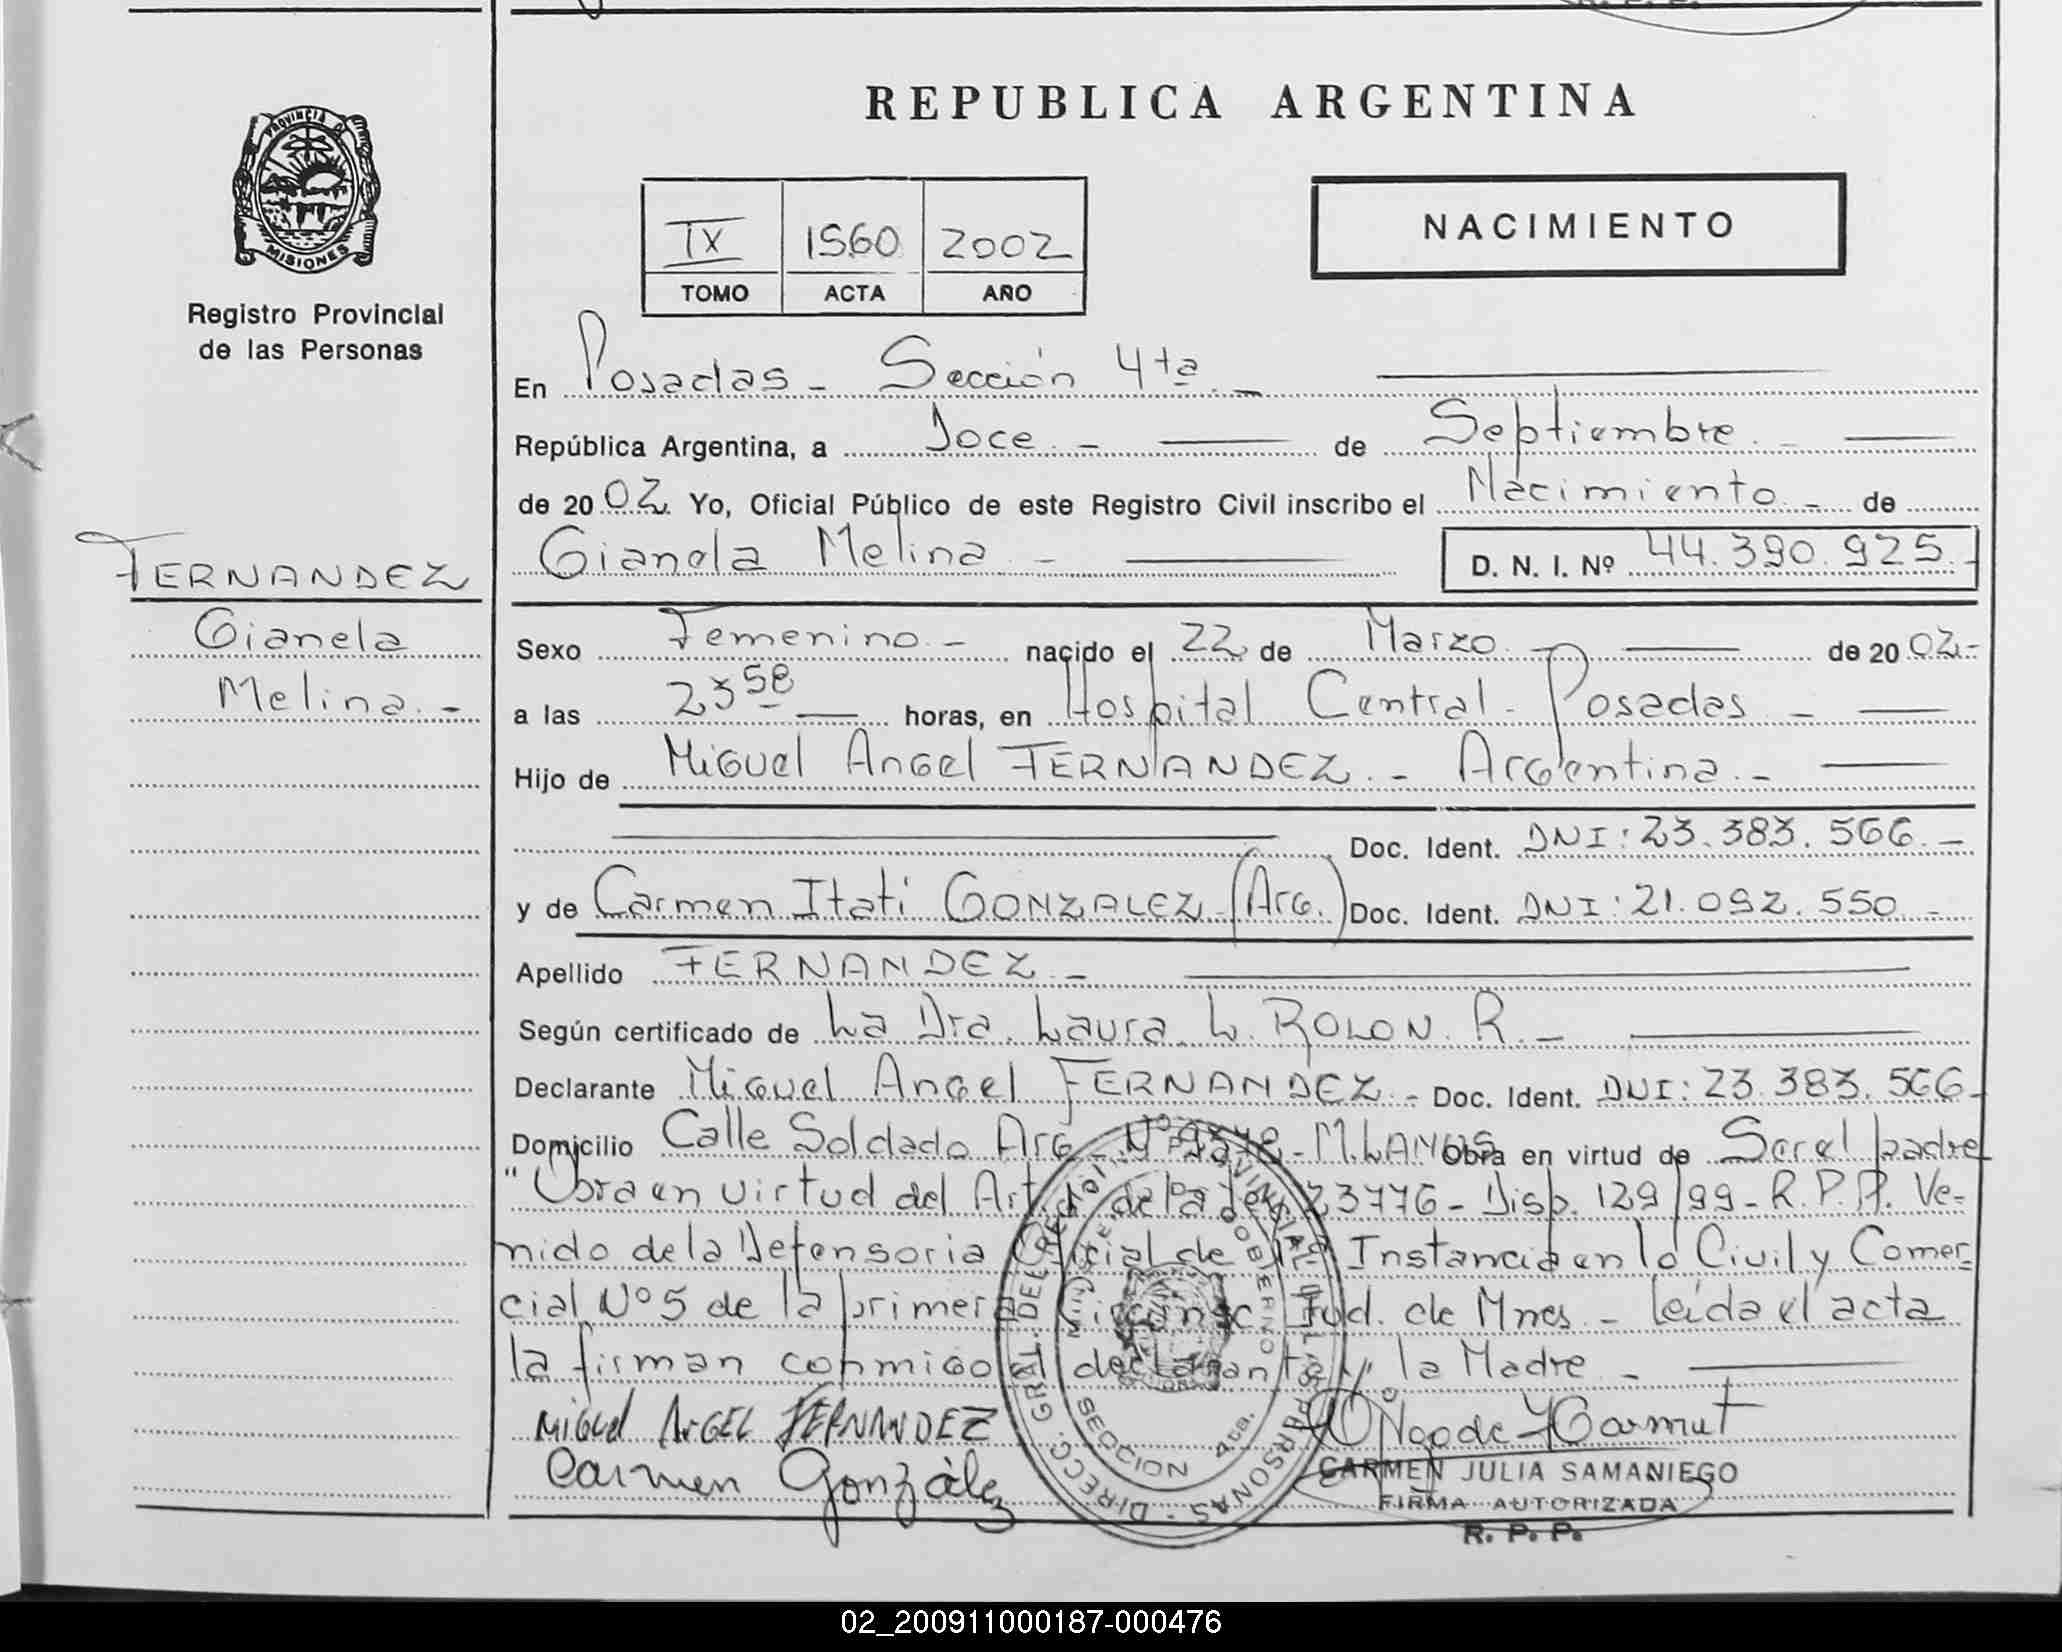 R. P. P.
REPUBLICA ARGENTINA
PROVINCIA DE
MISIONES
Registro Provincial
de las Personas
IX 1560 2002
TOMO ACTA AÑO
NACIMIENTO
En Posadas - Sección 4ta. -
República Argentina, a Doce - de Septiembre. -
de 2002. Yo, Oficial Público de este Registro Civil inscribo el Nacimiento - de
FERNANDEZ
Gianela
Melina. -
Gianela Melina - D. N. I. Nº 44.390.925. -
Sexo Femenino. - nacido el 22 de Marzo. - de 2002. -
a las 23 58 horas, en Hospital Central - Posadas -
Hijo de Miguel Angel FERNANDEZ. - Argentina. -
Doc. Ident. DNI: 23.383.566. -
y de Carmen Itati GONZALEZ (Arg.) Doc. Ident. DNI: 21.092.550 -
Apellido FERNANDEZ -
Según certificado de La Dra. Laura L. ROLON. R. -
Declarante Miguel Angel FERNANDEZ - Doc. Ident. DNI: 23.383.566 -
Domicilio Calle Soldado Arg. Nº - M. LANUS Obra en virtud de Ser el padre
"Obra en virtud del Art. de la Ley 23776 - Disp. 129/99 - R. P. P. Ve-
nido de la Defensoria Oficial de 1ra Instancia en lo Civil y Comer-
cial Nº 5 de la primera Circunsc. Jud. de Mnes. - Leída el acta
la firman conmigo el declarante y la Madre -
MIGUEL ANGEL FERNANDEZ
Carmen González
DIRECC. GRAL. DEL REG. PROVINCIAL DE LAS PERSONAS -
MINISTERIO DE GOBIERNO
SECCION 4ta.
CARMEN JULIA SAMANIEGO
FIRMA AUTORIZADA
R. P. P.
02_200911000187-000476